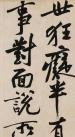 世狂癡半
事對面說